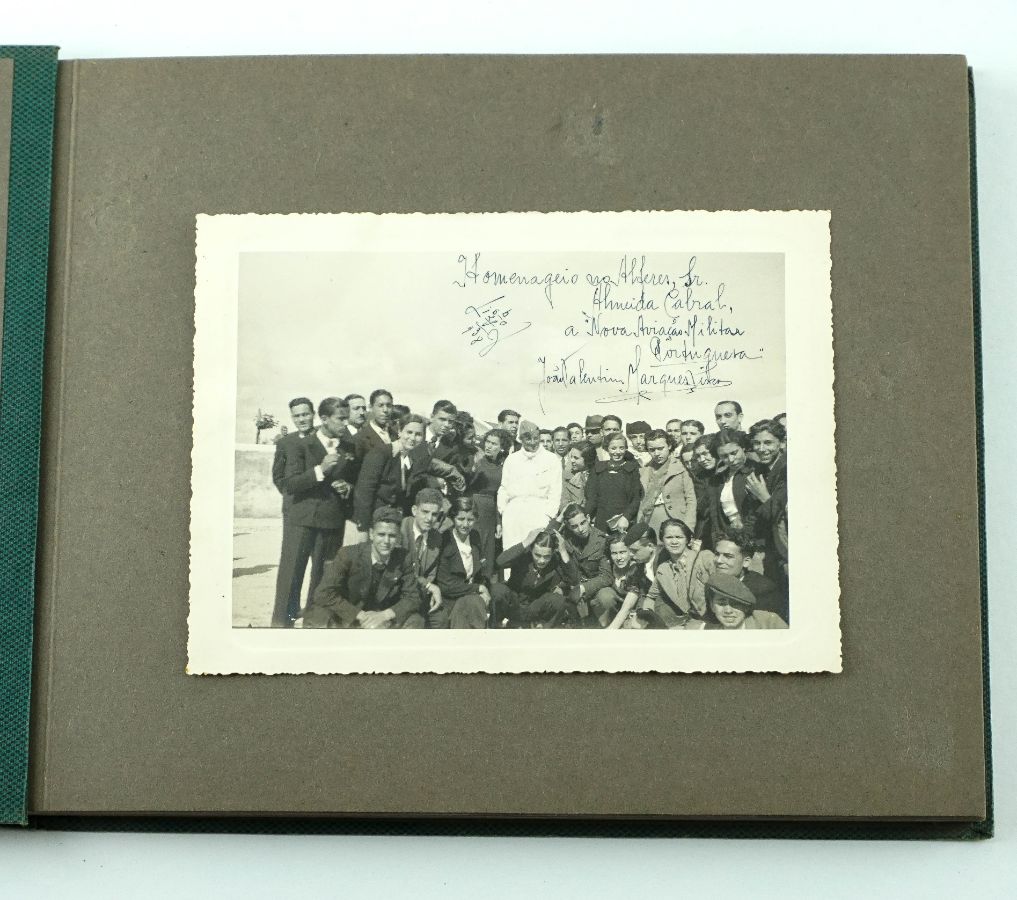 "Homenageio no Alferes, Sr.
Almeida Cabral,
a Nova Aviação Militar
Portuguesa"
João Valentim Marques